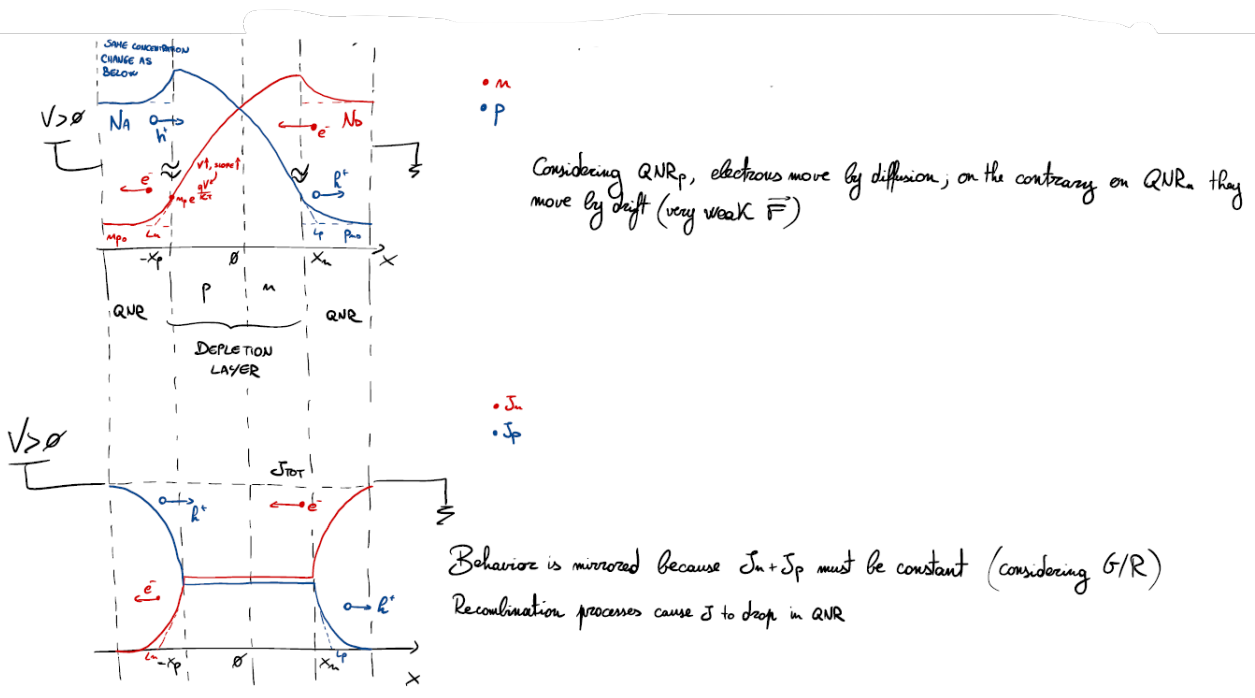 SAME CONCENTRATION
CHANGE AS
BELOW
V>0
NA
h+
e-
ND
e-
h+
V↑, SLOPE↑
np e^(qV/KT)
npo
Ln
Lp
pno
-xp
0
xn
x
n
p
Considering QNRp, electrons move by diffusion; on the contrary on QNRn they
move by drift (very weak F)
QNR
p
n
QNR
DEPLETION
LAYER
Jn
Jp
V>0
JTOT
h+
e-
e-
h+
Ln
-xp
0
xn
Lp
x
Behavior is mirrored because Jn+Jp must be constant (considering G/R)
Recombination processes cause J to drop in QNR